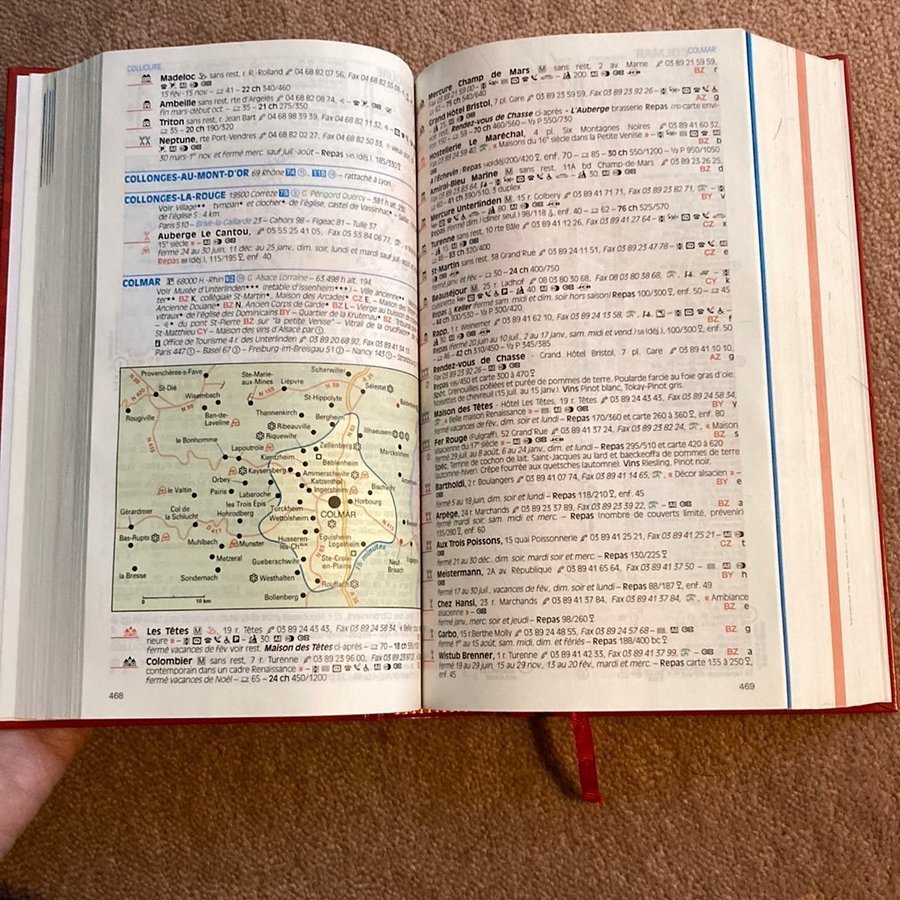 COLLIOURE
Madeloc sans rest, r. R.-Rolland 04 68 82 07 56, Fax 04 68 82 55 09
15 fév.-15 nov – 41 – 22 ch 340/460
Ambeille sans rest, rte d'Argelès 04 68 82 08 74,
fin mars-début oct. – 35 – 21 ch 275/350
Triton sans rest, r. Jean Bart 04 68 98 39 39, Fax 04 68 82 11 32,
35 – 20 ch 190/320
Neptune, rte Port-Vendres 04 68 82 02 27, Fax 04 68 82 50 33, «
30 mars-1er nov. et fermé merc. sauf juil.-août – Repas 145 (déj.), 185/330
COLLONGES-AU-MONT-D'OR 69 Rhône 74 ⑪, 110 ⑭ – rattaché à Lyon.
COLLONGES-LA-ROUGE 19500 Corrèze 75 ⑨ G. Périgord Quercy – 381 h alt.
Voir Village** : tympan* et clocher* de l'église, castel de Vassinhac* – Saillac
de l'église S : 4 km.
Paris 510 – Brive-la-Gaillarde 23 – Cahors 98 – Figeac 81 – Tulle 37
Auberge Le Cantou, 05 55 25 41 05, Fax 05 55 84 06 77,
15e siècle » – GB
fermé 24 au 30 juin, 11 déc. au 25 janv., dim. soir, lundi et mardi sauf juil. août
Repas (déj.), 115/195, enf. 40
COLMAR P 68000 H.-Rhin 62 ⑲ G. Alsace Lorraine – 63 498 h alt. 194
Voir Musée d'Unterlinden*** (retable d'Issenheim***) – Ville ancienne**
BZ K, collégiale St-Martin*, Maison des Arcades* CZ E, –
Ancienne Douane* BZ N, Ancien Corps de Garde* BZ L – Vierge au buisson
vitraux* de l'église des Dominicains BY – Quartier de la Krutenau* BZ : Tribunal
– <* du pont St-Pierre BZ sur "la petite Venise" – Vitrail de la
St-Matthieu CY – Maison des vins d'Alsace par ①.
Office de Tourisme 4 r. des Unterlinden 03 89 20 68 92, Fax 03 89 41 34
Paris 447 ① – Basel 67 ③ – Freiburg-im-Breisgau 51 ② – Nancy 143 ① –
Provenchères-s-Fave
Ste-Marie-aux-Mines
Scherwiller
St-Dié
Wisembach
Lièpvre
N 59
Sélestat
Rougiville
Ban-de-Laveline
St-Hippolyte
N 415
Thannenkirch
Bergheim
Ribeauvillé
Riquewihr
Illhaeusern
le Bonhomme
Lapoutroie
Zellenberg
Marckolsheim
Kientzheim
Beblenheim
Kaysersberg
Ammerschwihr
Orbey
Katzenthal
le Valtin
Pains
Labaroche
Ingersheim
Bischwihr
les Trois Épis
Horbourg
Gérardmer
Col de la Schlucht
Hohrodberg
Turckheim
COLMAR
Wettolsheim
Bas-Rupts
Munster
Husseren-les-Chx
Eguisheim
N 415
Muhlbach
Logelheim
Metzeral
Gueberschwihr
Ste-Croix-en-Plaine
15 minutes
la Bresse
Sondernach
Westhalten
Rouffach
Neuf-Brisach
10 km
Bollenberg
Les Têtes M, 19 r. Têtes 03 89 24 43 43, Fax 03 89 24 58 34, « Belle
rieure » – 30 GB
fermé vacances de fév. voir rest. Maison des Têtes ci-après – 70 – 18 ch
Colombier M sans rest, 7 r. Turenne 03 89 23 96 00, Fax 03 89 23 97 27,
contemporain dans un cadre Renaissance » – GB
fermé vacances de Noël – 65 – 24 ch 450/1200
468
COLMAR
Mercure Champ de Mars M sans rest, 2 av. Marne 03 89 21 59 59,
Fax 03 89 21 59 00 – 200 GB BZ r
– 62 – 75 ch 540/640
Grand Hôtel Bristol, 7 pl. Gare 03 89 23 59 59, Fax 03 89 23 92 26 –
25 GB AZ g
voir rest. Rendez-vous de Chasse ci-après - L'Auberge brasserie Repas carte envi-
ron 150 – 59 – 70 ch 460/560 – ½ P 550/730
Hostellerie Le Maréchal, 4 pl. Six Montagnes Noires 03 89 41 60 32,
Fax 03 89 24 59 40, « Maisons du 16e siècle dans la Petite Venise » –
GB BZ b
A l'Échevin : Repas 140(déj)/200/420, enf. 70 – 85 – 30 ch 550/1200 – ½ P 950/1050
Amiral-Bleu Marine M sans rest, 11A bd Champ-de-Mars 03 89 23 26 25,
Fax 03 89 23 83 64, – 30 GB BZ d
60 – 41 ch 390/510, 3 duplex
Mercure Unterlinden M, 15 r. Golbery 03 89 41 71 71, Fax 03 89 23 82 71,
80 GB BY v
Repas (fermé dim.) (dîner seul.) 98/118, enf. 40 – 62 – 76 ch 525/570
Turenne sans rest, 10 rte Bâle 03 89 41 12 26, Fax 03 89 41 27 64 –
15 GB CZ x
48 – 83 ch 320/400
St-Martin sans rest, 38 Grand Rue 03 89 24 11 51, Fax 03 89 23 47 78 –
GB CZ e
fermé janv. et fév. – 50 – 24 ch 400/750
Beauséjour M, 25 r. Ladhof 08 03 80 30 68, Fax 08 03 80 38 68,
cuisinette – 40 GB CY k
Repas Keller (fermé sam. midi et dim. soir hors saison) Repas 100/300, enf. 50 – 45
– 44 ch 300/530 – ½ P 300/420
Rapp, 1 r. Weinemer 03 89 41 62 10, Fax 03 89 24 13 58,
30 GB BZ f
Repas (fermé 20 juin au 10 juil., 2 au 17 janv., sam. midi et vend.) (déj.), 100/300, enf. 50
– 46 – 42 ch 310/450 – ½ P 345/385
Rendez-vous de Chasse - Grand Hôtel Bristol, 7 pl. Gare 03 89 41 10 10,
Fax 03 89 23 92 26 – GB AZ g
Repas 195/450 et carte 300 à 470
Spéc. Grenouilles poêlées et purée de pommes de terre. Poularde farcie au foie gras d'oie.
Noisettes de chevreuil (15 juil. au 15 janv.). Vins Pinot blanc, Tokay-Pinot gris.
Maison des Têtes - Hôtel Les Têtes, 19 r. Têtes 03 89 24 43 43, Fax 03 89 24 58 34,
« Belle maison Renaissance » – GB BY v
fermé vacances de fév., dim. soir et lundi – Repas 170/360 et carte 260 à 360, enf. 80
Fer Rouge (Fulgraff), 52 Grand'Rue 03 89 41 37 24, Fax 03 89 23 82 24, « Maison
alsacienne du 17e siècle » – GB BZ s
fermé 29 juil. au 8 août, 6 au 24 janv., dim. et lundi – Repas 295/510 et carte 420 à 620
Spéc. Terrine de cochon de lait. Saint-Jacques au lard et baeckeoffa de pommes de terre
(automne-hiver). Crêpe fourrée aux quetsches (automne). Vins Riesling, Pinot noir.
Bartholdi, 2 r. Boulangers 03 89 41 07 74, Fax 03 89 41 14 65, « Décor alsacien » –
GB BY e
fermé 5 au 18 juin, dim. soir et lundi – Repas 118/210, enf. 45
Arpège, 24 r. Marchands 03 89 23 37 89, Fax 03 89 23 39 22, – GB BZ a
fermé mardi soir, sam. midi et merc. – Repas (nombre de couverts limité, prévenir)
135/280, enf. 60
Aux Trois Poissons, 15 quai Poissonnerie 03 89 41 25 21, Fax 03 89 41 25 21 –
GB CZ t
fermé 21 au 30 déc., dim. soir, mardi soir et merc. – Repas 130/225
Meistermann, 2A av. République 03 89 41 65 64, Fax 03 89 41 37 50,
GB BY h
fermé 17 au 30 juil., vacances de fév., dim. soir et lundi – Repas 88/187, enf. 49
Chez Hansi, 23 r. Marchands 03 89 41 37 84, Fax 03 89 41 37 84, « Ambiance
alsacienne » – GB BZ e
fermé janv., merc. soir et jeudi – Repas 98/260
Garbo, 15 r. Berthe Molly 03 89 24 48 55, Fax 03 89 24 57 68 – GB BZ g
fermé 1er au 15 août, sam. midi, dim. et fériés – Repas 188/400 bc
Wistub Brenner, 1 r. Turenne 03 89 41 42 33, Fax 03 89 41 37 99, – GB BZ a
fermé 19 au 29 juin, 15 au 29 nov., 13 au 20 fév., mardi et merc. – Repas carte 135 à 250,
enf. 45
469